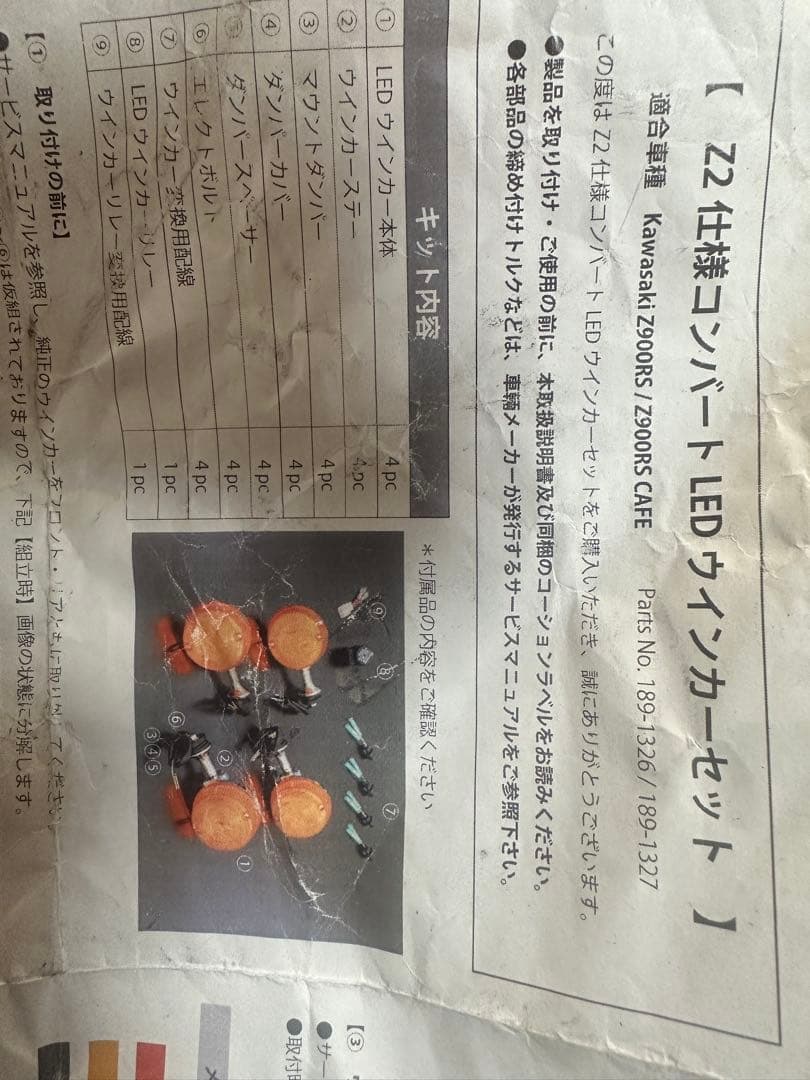 【 Z2 仕様コンバート LED ウインカーセット 】
適合車種 Kawasaki Z900RS / Z900RS CAFE Parts No. 189-1326 / 189-1327
この度は Z2 仕様コンバート LED ウインカーセットをご購入いただき、誠にありがとうございます。
●製品を取り付け・ご使用の前に、本取扱説明書及び同梱のコーションラベルをお読みください。
●各部品の締め付けトルクなどは、車輌メーカーが発行するサービスマニュアルをご参照下さい。
キット内容
① LED ウインカー本体 4 pc
② ウインカーステー 4 pc
③ マウントダンパー 4 pc
④ ダンパーカバー 4 pc
⑤ ダンパースペーサー 4 pc
⑥ エレクトボルト 4 pc
⑦ ウインカー変換用配線 4 pc
⑧ LED ウインカーリレー 1 pc
⑨ ウインカーリレー変換用配線 1 pc
＊付属品の内容をご確認ください
⑨ ⑧ ⑦
② ①
⑥
③④⑤
【① 取り付けの前に】
●サービスマニュアルを参照し、純正のウインカーをフロント・リアともに取り外してください。
⑥は仮組されておりますので、下記【組立時】画像の状態に分解します。
【③
●サー
●取付